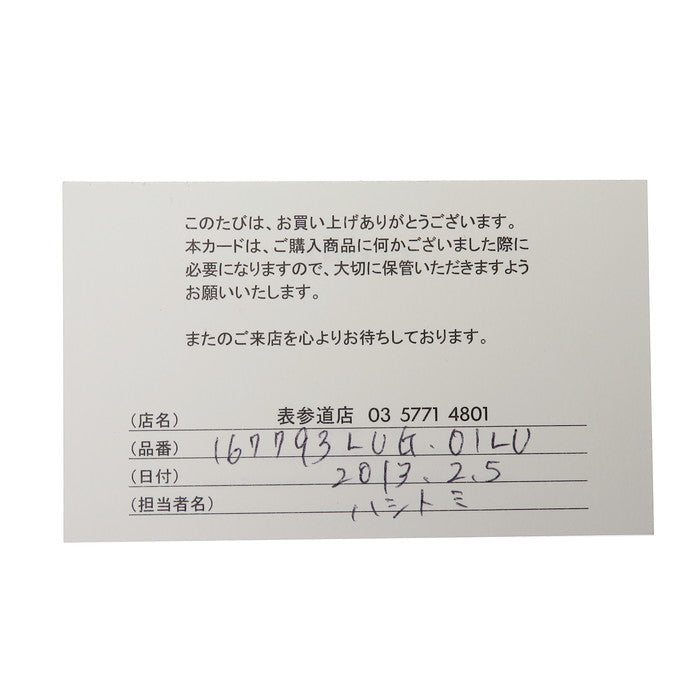 このたびは、お買い上げありがとうございます。
本カードは、ご購入商品に何かございました際に
必要になりますので、大切に保管いただきますよう
お願いいたします。
またのご来店を心よりお待ちしております。
(店名) 表参道店 03 5771 4801
(品番) 167793 LUG. 01LU
(日付) 2013. 2.5
(担当者名) ハシトミ